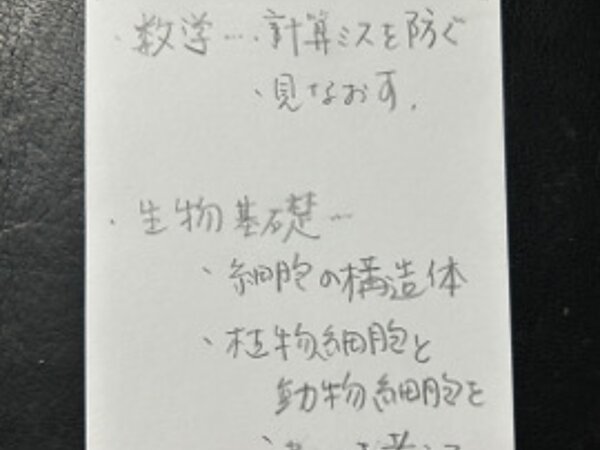 ・数学…・計算ミスを防ぐ
・見なおす.
・生物基礎…
・細胞の構造体
・植物細胞と
動物細胞を